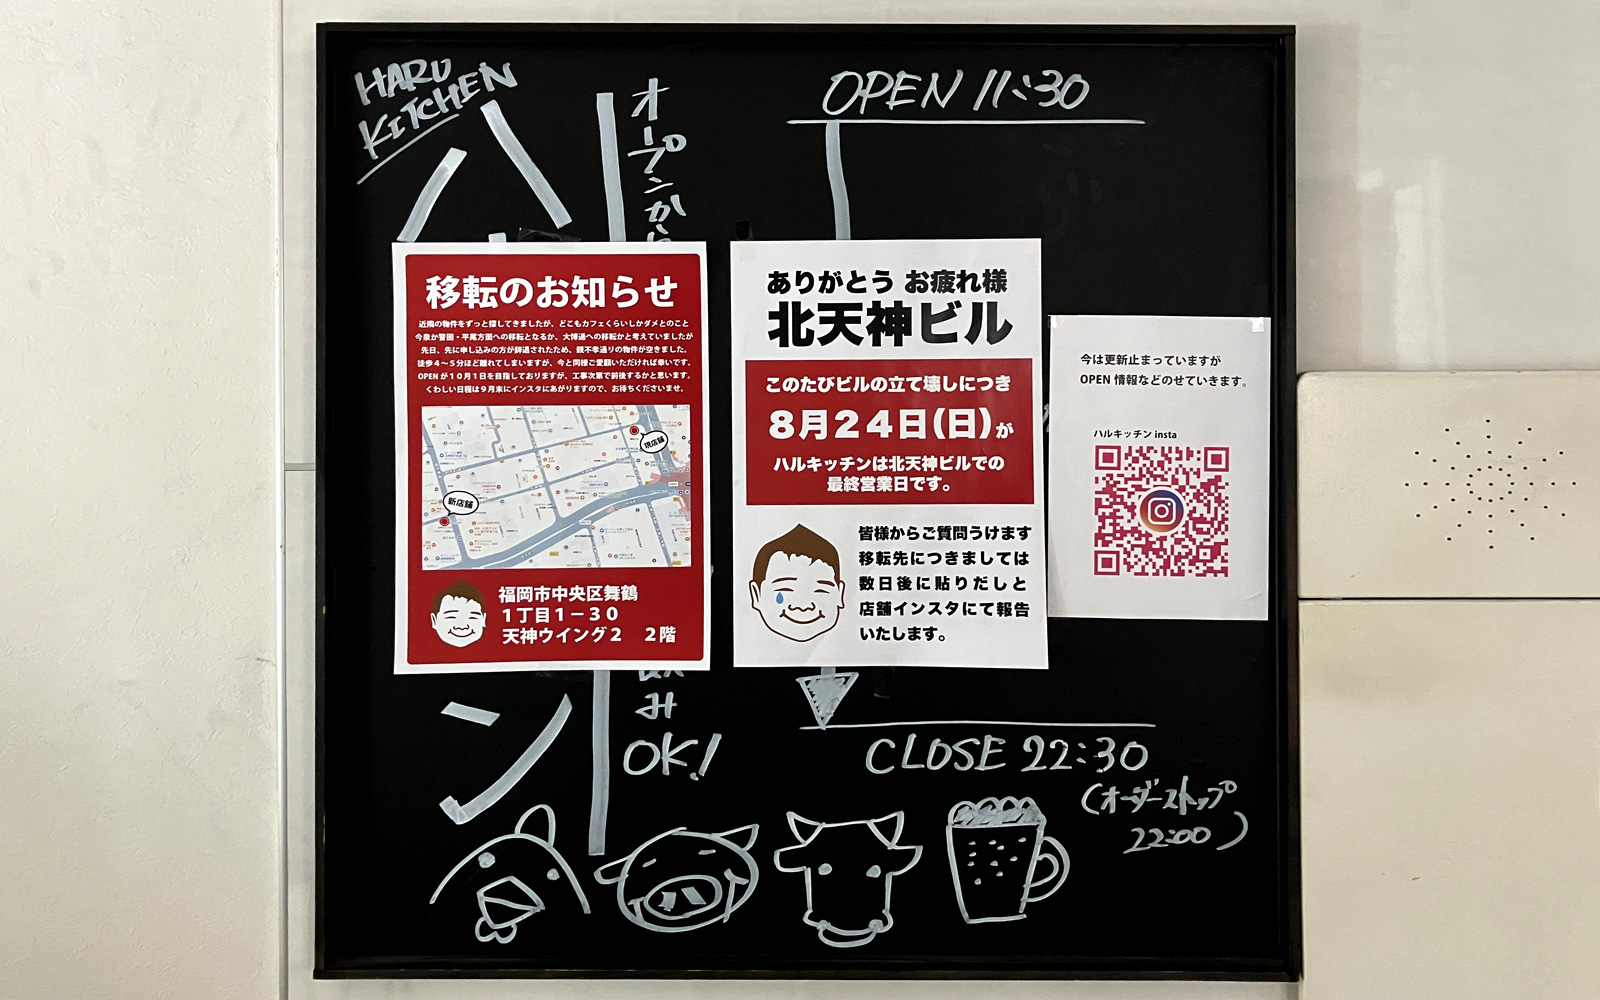 HARU
KITCHEN
ハ
ン
オープンから
み
OK!
OPEN 11:30
移転のお知らせ
近隣の物件をずっと探してきましたが、どこもカフェくらいしかダメとのこと
今泉か警固・平尾方面への移転となるか、大博通への移転かと考えていましたが
先日、先に申し込みの方が辞退されたため、親不孝通りの物件が空きました。
徒歩4~5分ほど離れてしまいますが、今と同様ご愛顧いただければ幸いです。
OPENが10月1日を目指しておりますが、工事次第で前後するかと思います。
くわしい日程は9月末にインスタにあがりますので、お待ちくださいませ。
現店舗
新店舗
福岡市中央区舞鶴
1丁目1-30
天神ウイング2 2階
ありがとう お疲れ様
北天神ビル
このたびビルの立て壊しにつき
8月24日(日)が
ハルキッチンは北天神ビルでの
最終営業日です。
皆様からご質問うけます
移転先につきましては
数日後に貼りだしと
店舗インスタにて報告
いたします。
今は更新止まっていますが
OPEN 情報などのせていきます。
ハルキッチン insta
CLOSE 22:30
(オーダーストップ
22:00)